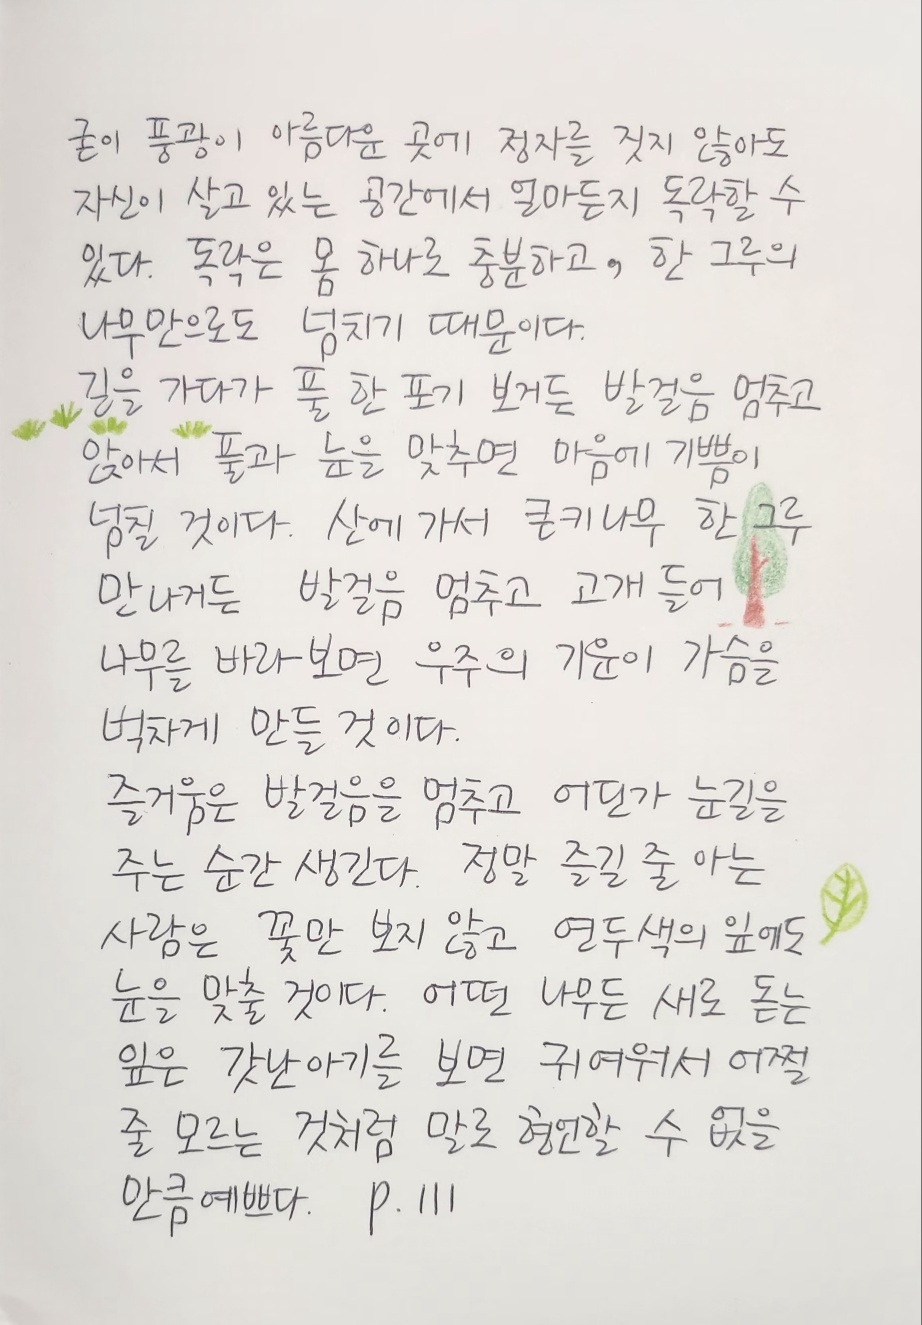 굳이 풍광이 아름다운 곳에 정자를 짓지 않아도
자신이 살고 있는 공간에서 얼마든지 독락할 수
있다. 독락은 몸 하나로 충분하고, 한 그루의
나무만으로도 넘치기 때문이다.
길을 가다가 풀 한 포기 보거든 발걸음 멈추고
앉아서 풀과 눈을 맞추면 마음에 기쁨이
넘칠 것이다. 산에 가서 큰키나무 한 그루
만나거든 발걸음 멈추고 고개 들어
나무를 바라보면 우주의 기운이 가슴을
벅차게 만들 것이다.
즐거움은 발걸음을 멈추고 어딘가 눈길을
주는 순간 생긴다. 정말 즐길 줄 아는
사람은 꽃만 보지 않고 연두색의 잎에도
눈을 맞출 것이다. 어떤 나무든 새로 돋는
잎은 갓난아기를 보면 귀여워서 어쩔
줄 모르는 것처럼 말로 형언할 수 없을
만큼 예쁘다. p. 111